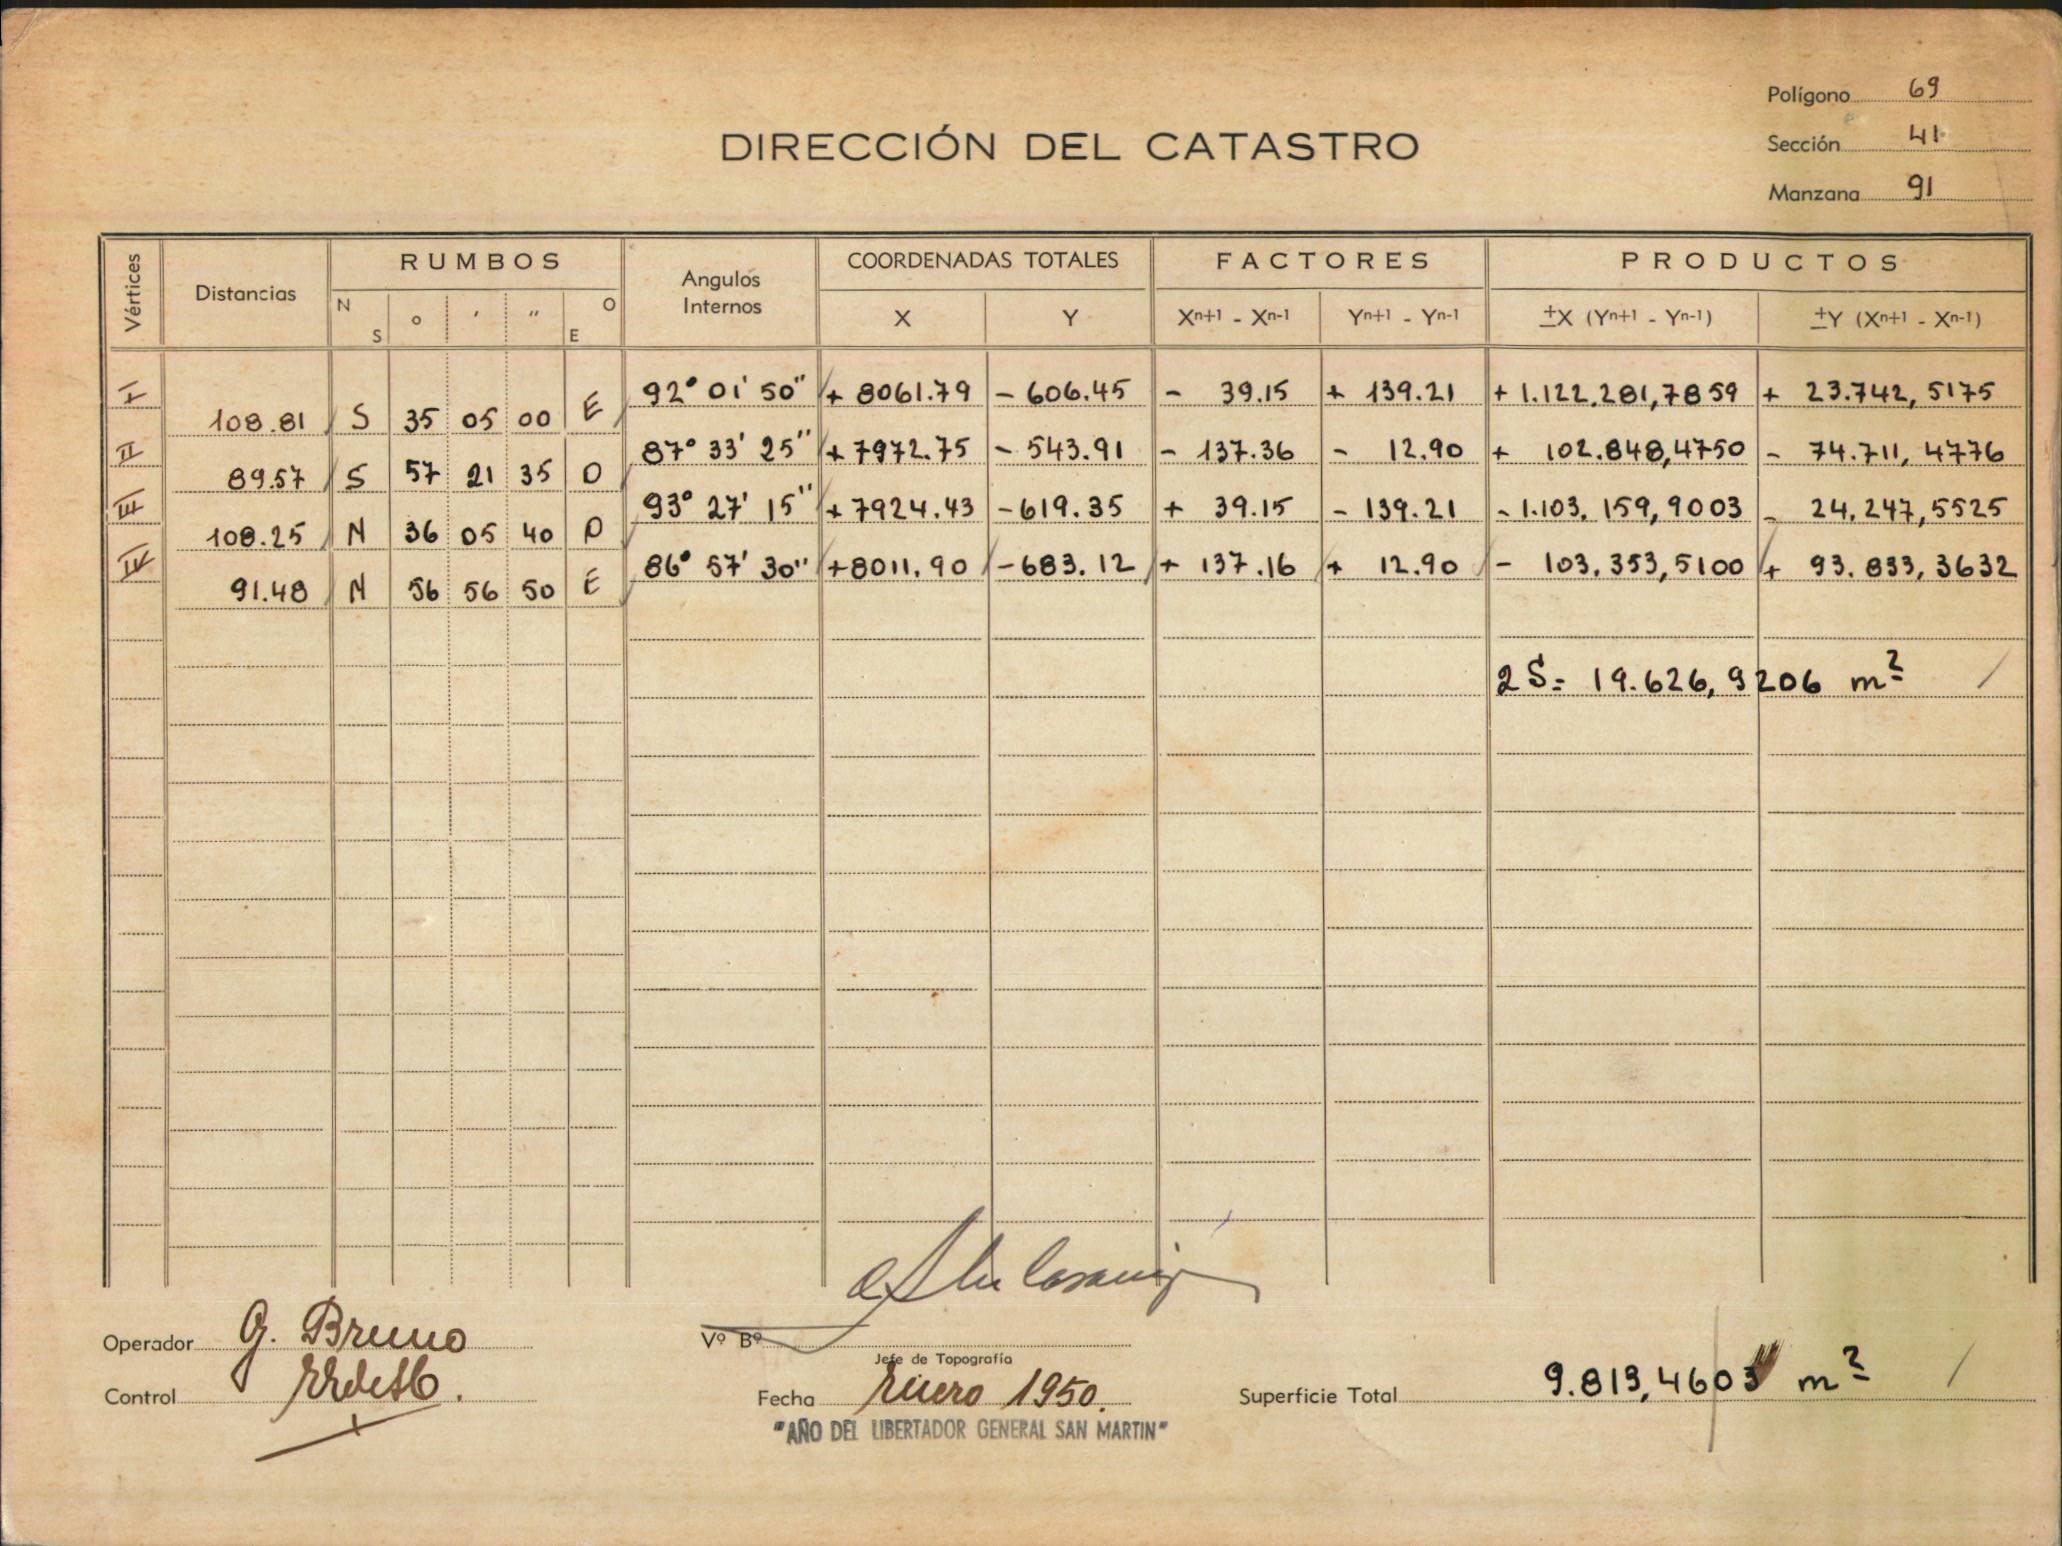 Polígono 69
DIRECCIÓN DEL CATASTRO
Sección 41
Manzana 91
Vértices Distancias RUMBOS Angulos Internos COORDENADAS TOTALES FACTORES PRODUCTOS
N S ° ' " O E X Y Xn+1 - Xn-1 Yn+1 - Yn-1 ±X (Yn+1 - Yn-1) ±Y (Xn+1 - Xn-1)
I 92° 01' 50" + 8061.79 - 606.45 - 39.15 + 139.21 + 1.122.281,7859 + 23.742,5175
108.81 S 35 05 00 E
II 87° 33' 25" + 7972.75 - 543.91 - 137.36 - 12.90 + 102.848,4750 - 74.711,4776
89.57 S 57 21 35 O
III 93° 27' 15" + 7924.43 - 619.35 + 39.15 - 139.21 - 1.103.159,9003 - 24.247,5525
108.25 N 36 05 40 O
IV 86° 57' 30" + 8011.90 - 683.12 + 137.16 + 12.90 - 103.353,5100 + 93.833,3632
91.48 N 56 56 50 E
2S = 19.626,9206 m²
Operador G. Bruno
Vº Bº
Jefe de Topografía
Control
Fecha Enero 1950.
Superficie Total 9.813,4603 m²
"AÑO DEL LIBERTADOR GENERAL SAN MARTIN"